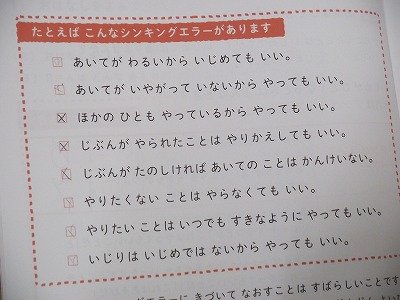 たとえば こんなシンキングエラーがあります
あいてが わるいから いじめても いい。
あいてが いやがって いないから やっても いい。
ほかの ひとも やっているから やっても いい。
じぶんが やられたことは やりかえしても いい。
じぶんが たのしければ あいての ことは かんけいない。
やりたくない ことは やらなくても いい。
やりたい ことは いつでも すきなように やっても いい。
いじりは いじめでは ないから やっても いい。
グエラーに きづいて なおすことは すばらしいことです